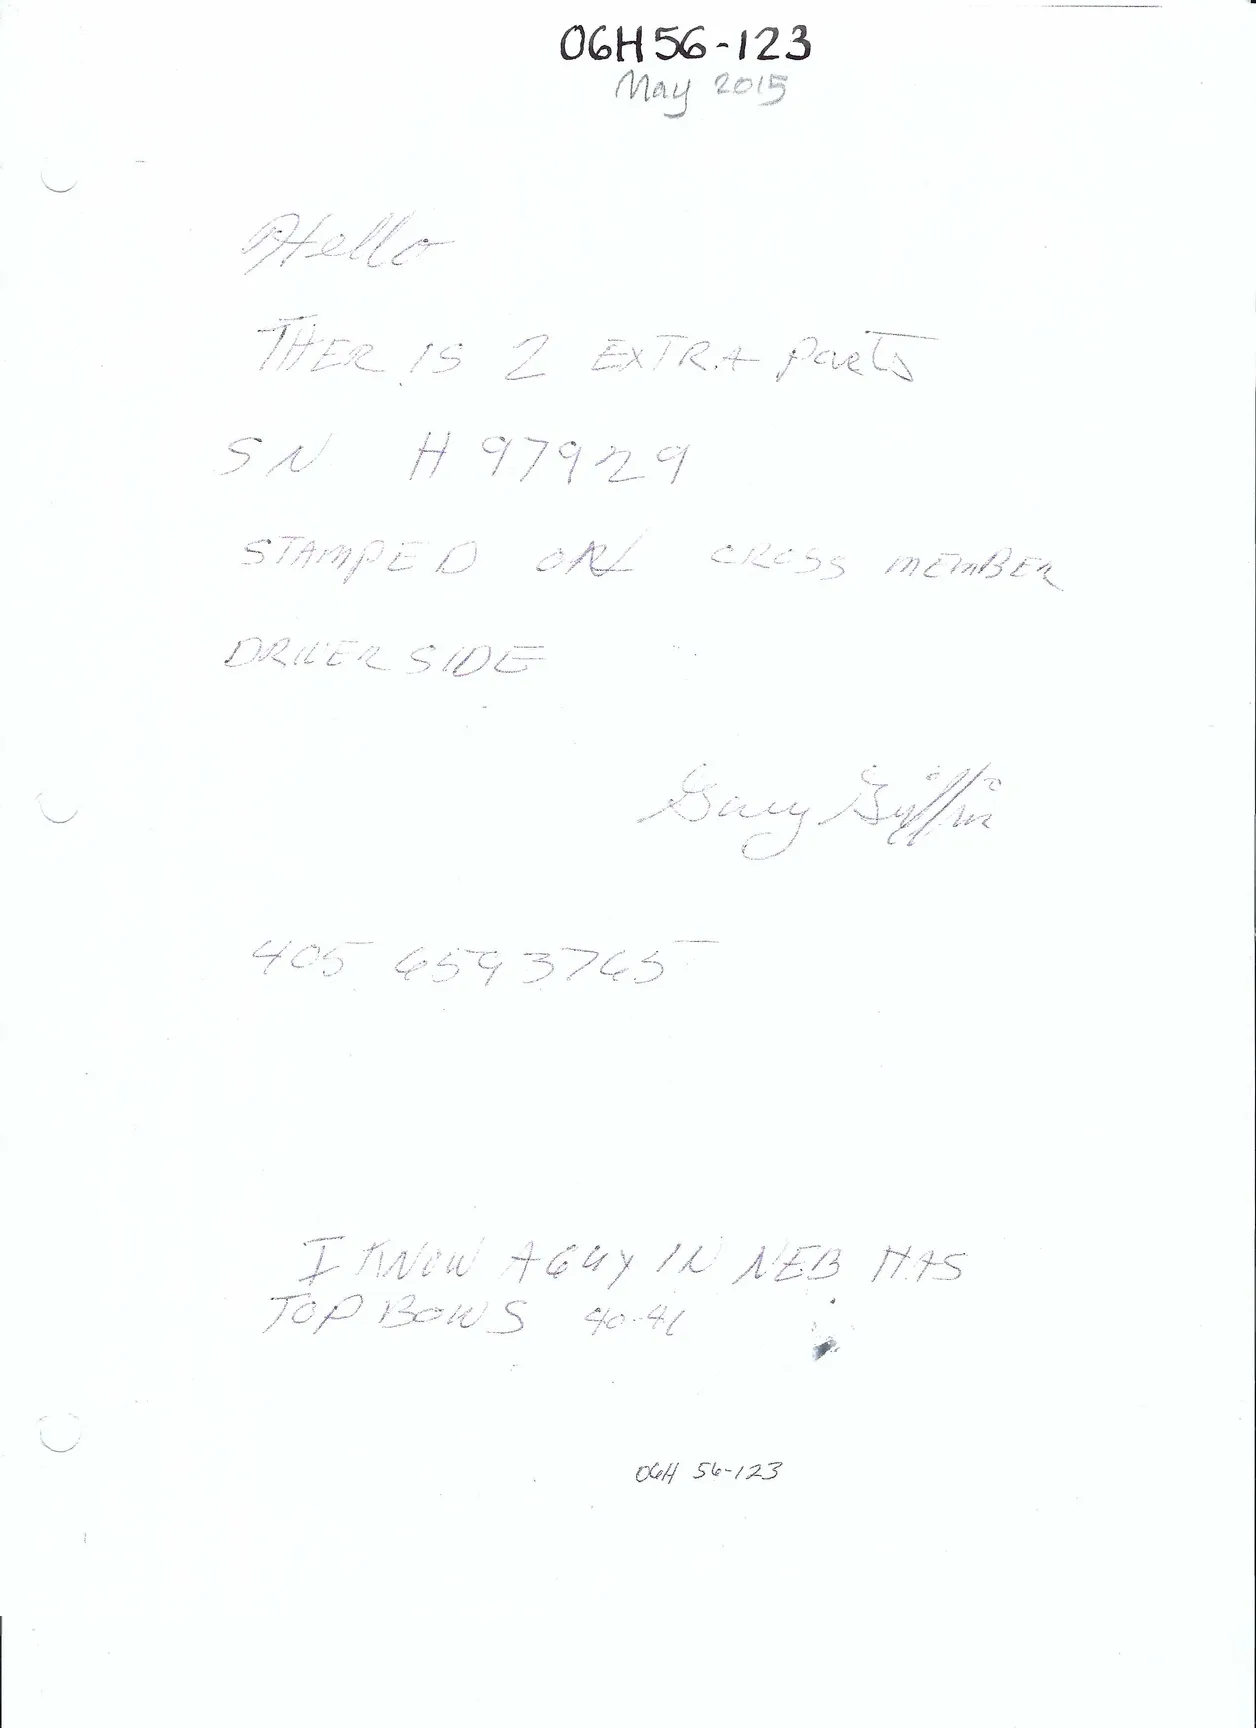 06H56-123
May 2015
Hello
THER IS 2 EXTRA Parts
SN H97929
STAMPED ON CROSS MEMBER
DRIVER SIDE
Gary Griffin
405 6593765
I KNOW A GUY IN NEB HAS
TOP BOWS 40-41
06H 56-123